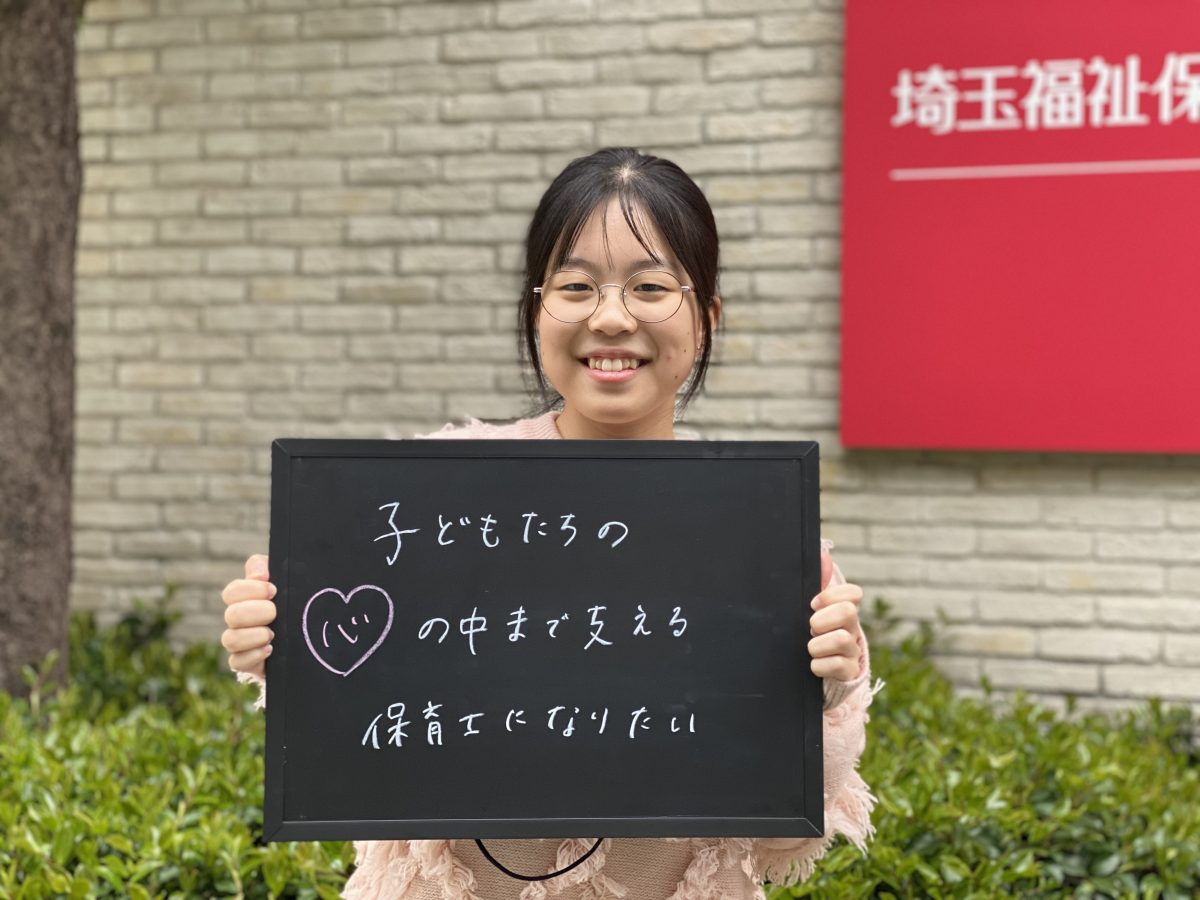 埼玉福祉保
子どもたちの
心の中まで支える
保育士になりたい